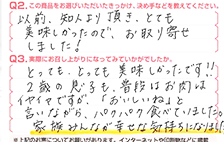 Q2.この商品をお選びいただいたきっかけ、決め手などを教えてください。
以前、知人より頂き、とても
美味しかったので、お取り寄せ
しました!
Q3.実際にお召し上がりになってみていかがでしたか。
とっても、とっても美味しかったです!!
2歳の息子も、普段はお肉は
イヤイヤですが、「おいしいね」と
言いながら、パクパク食べていました。
家族みんなが幸せな気分になりました!
※上記のお声について
インターネットや印刷物などに掲載